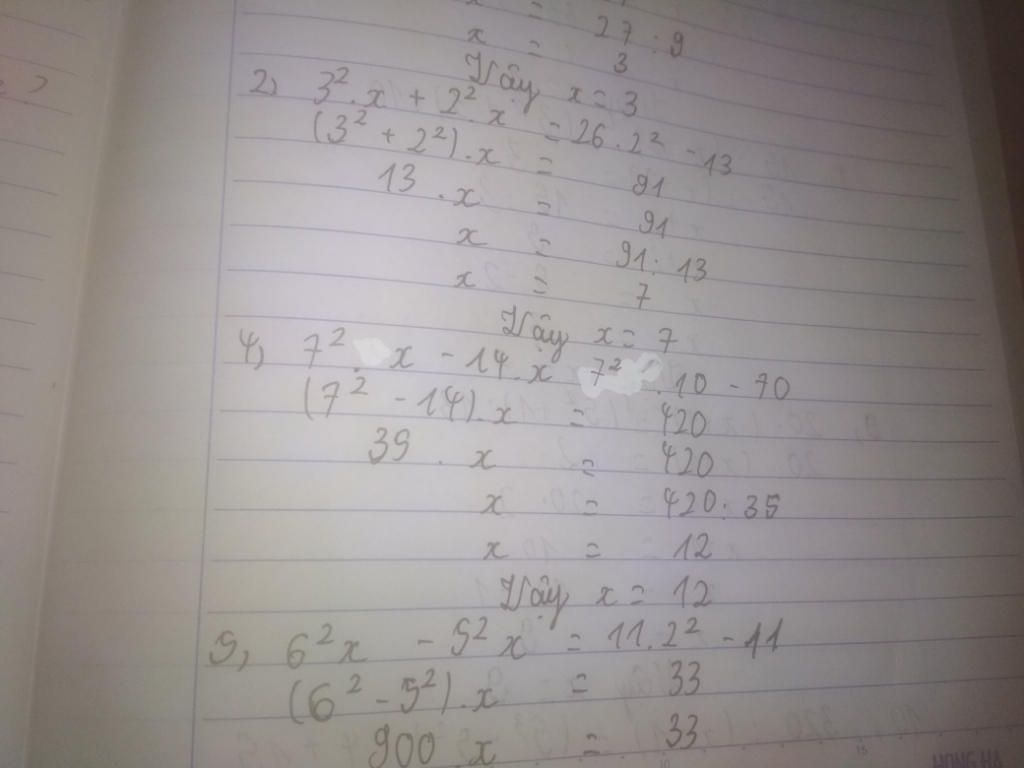 x = 27 : 9
x = 3
Vậy x = 3
2) 3² . x + 2² . x = 26 . 2² - 13
(3² + 2²) . x = 91
13 . x = 91
x = 91 : 13
x = 7
Vậy x = 7
4, 7² . x - 14 . x 7² . 10 - 70
(7² - 14) . x = 420
39 . x = 420
x = 420 : 35
x = 12
Vậy x = 12
5, 6²x - 5²x = 11.2² - 11
(6² - 5²) . x = 33
900 x = 33
HONG HA